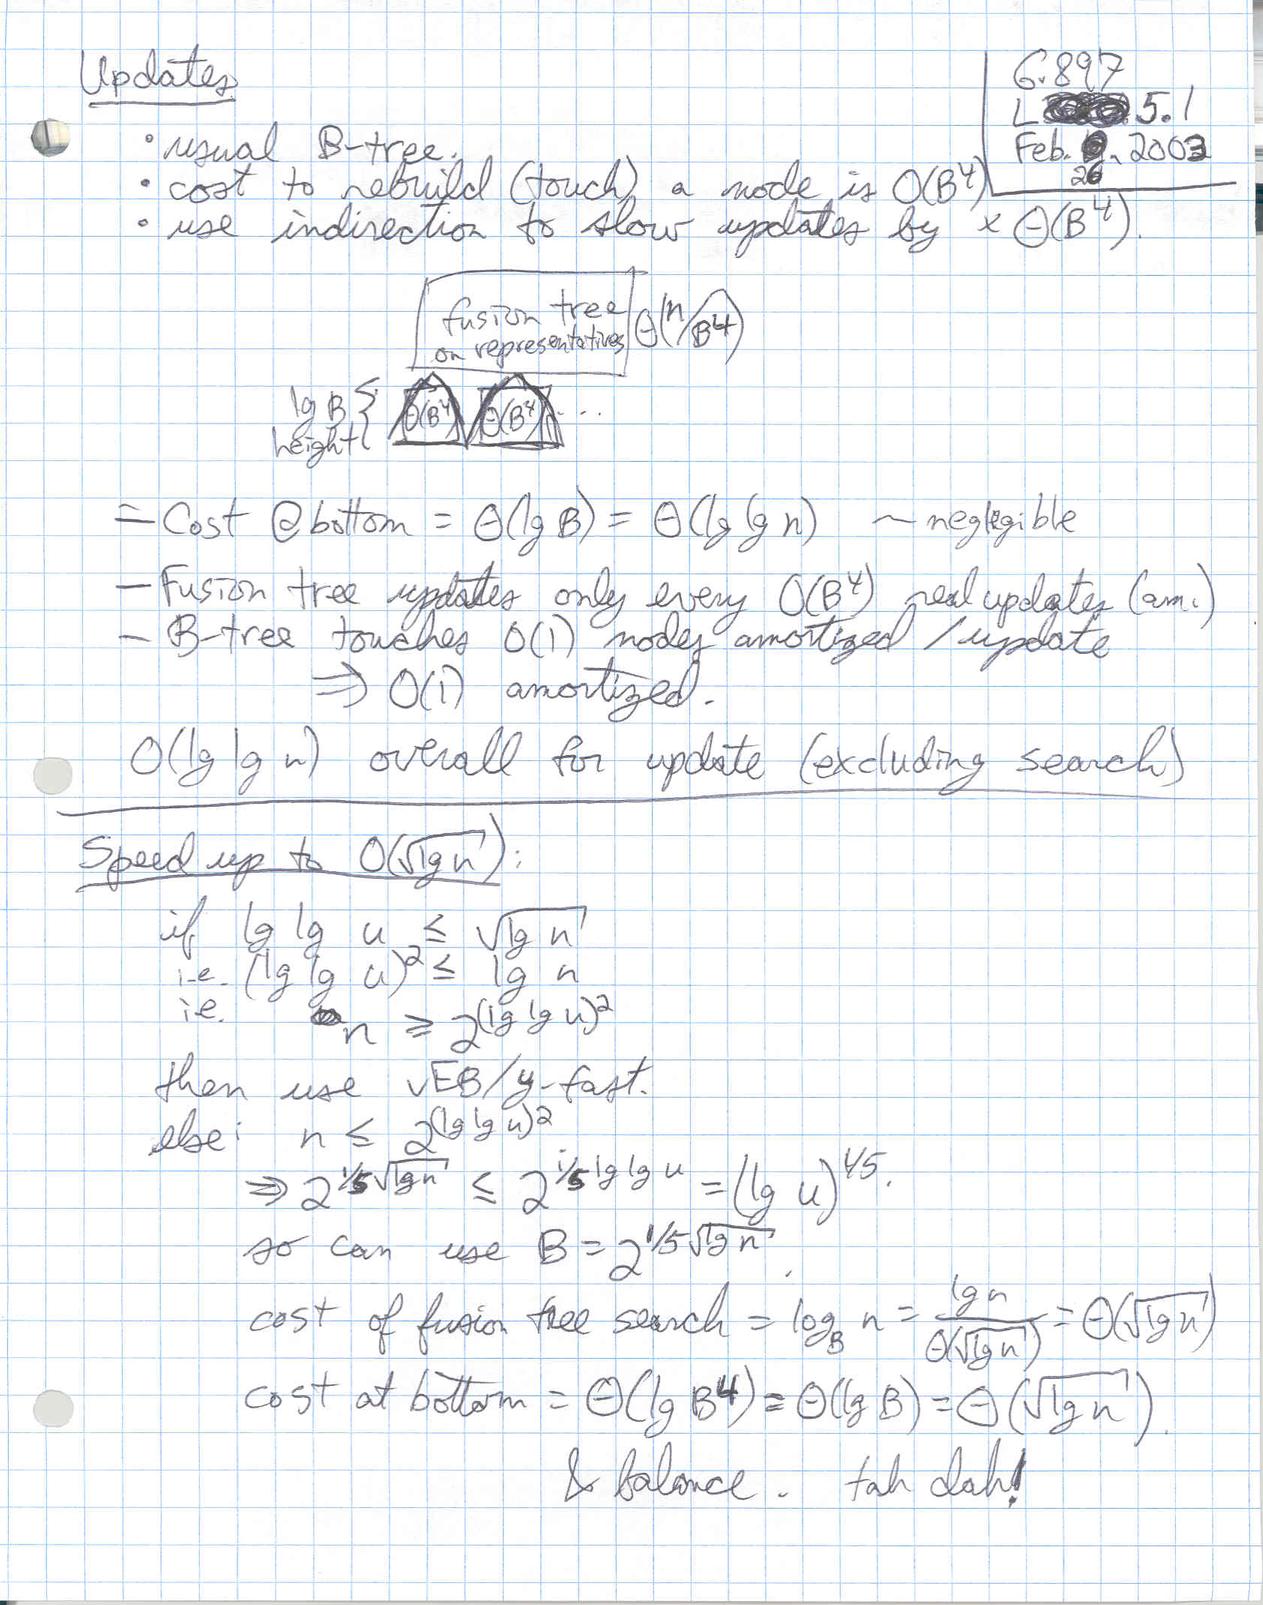 Updates
6.897
L 5.1
Feb. 26, 2003
• usual B-tree.
• cost to rebuild (touch) a node is O(B⁴)
• use indirection to slow updates by × Θ(B⁴).
fusion tree
on representatives
Θ(n/B⁴)
lg B
height
Θ(B⁴) Θ(B⁴) ...
– Cost @ bottom = Θ(lg B) = Θ(lg lg n) ~ neglegible
– Fusion tree updates only every O(B⁴) real updates (am.)
– B-tree touches O(1) nodes amortized / update
⇒ O(1) amortized.
O(lg lg n) overall for update (excluding search)
Speed up to O(√lg n):
if lg lg u ≤ √lg n
i.e. (lg lg u)² ≤ lg n
i.e. n ≥ 2^(lg lg u)²
then use vEB/y-fast.
else: n ≤ 2^(lg lg u)²
⇒ 2^(1/5 √lg n) ≤ 2^(1/5 lg lg u) = (lg u)^(1/5).
so can use B = 2^(1/5 √lg n).
cost of fusion tree search = log_B n = lg n / Θ(√lg n) = Θ(√lg n)
cost at bottom = Θ(lg B⁴) = Θ(lg B) = Θ(√lg n).
& balance. tah dah!